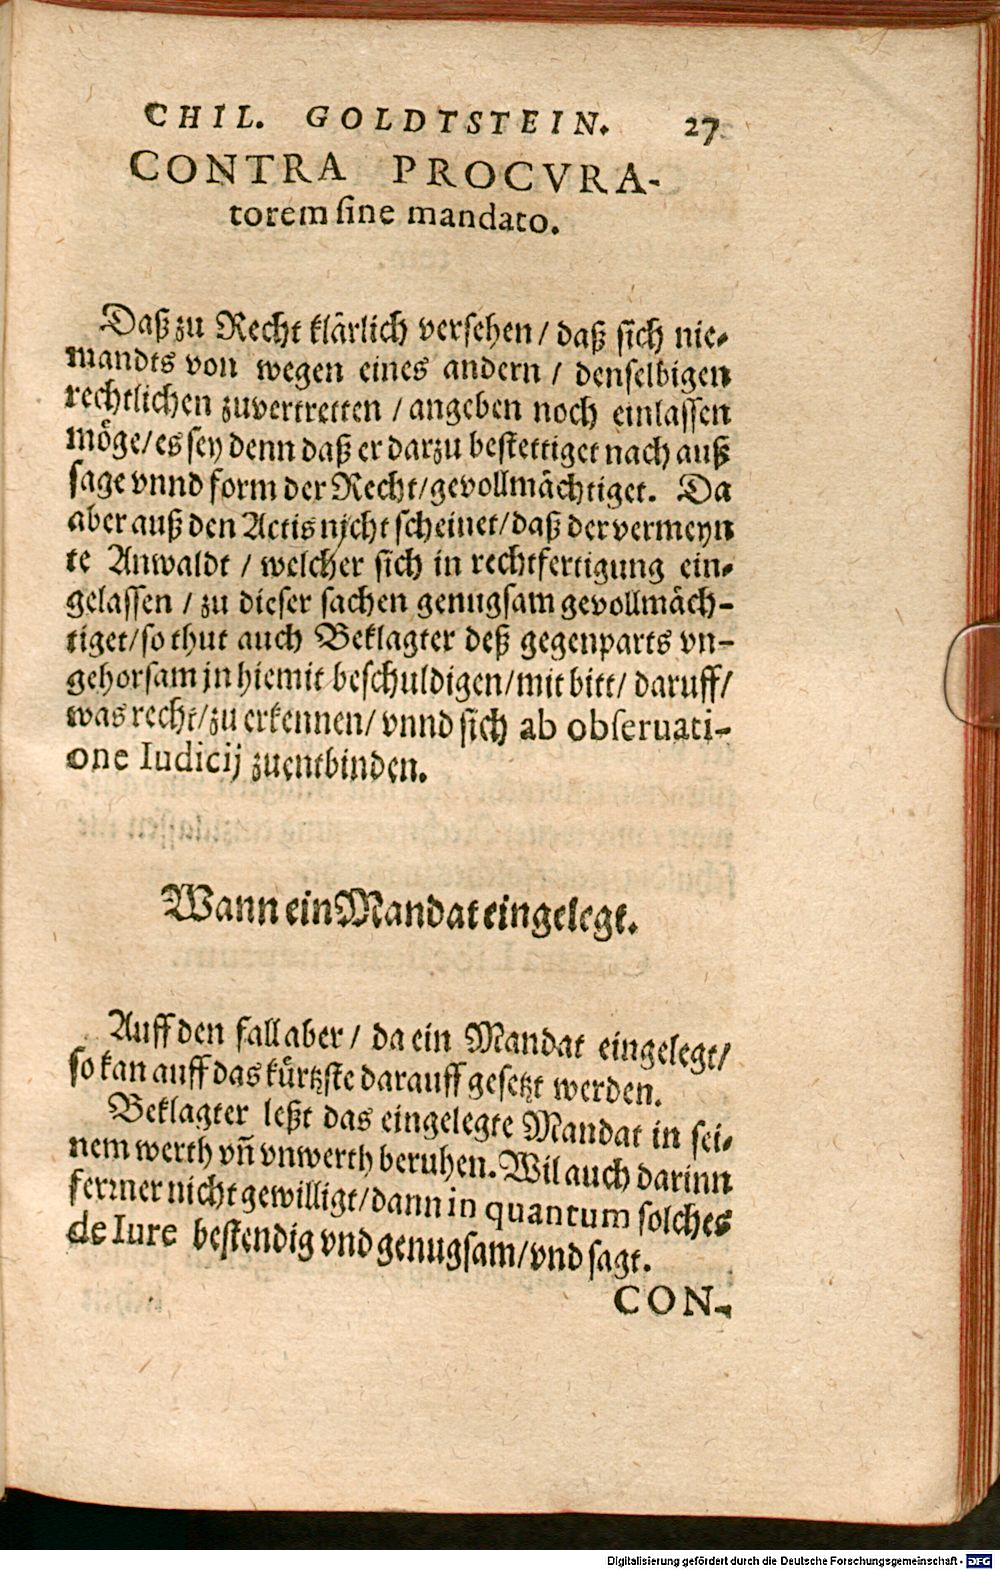 CHIL. GOLDTSTEIN. 27
CONTRA PROCVRA-
torem sine mandato.
Daß zu Recht klärlich versehen / daß sich nie-
mandts von wegen eines andern / denselbigen
rechtlichen zuvertretten / angeben noch einlassen
möge/ es sey denn daß er darzu bestettiget nach auß
sage vnnd form der Recht/ gevollmächtiget. Da
aber auß den Actis nicht scheinet/ daß der vermeyn
te Anwaldt / welcher sich in rechtfertigung ein-
gelassen / zu dieser sachen genugsam gevollmäch-
tiget/ so thut auch Beklagter deß gegenparts vn-
gehorsam jn hiemit beschuldigen/ mit bitt/ daruff/
was recht/ zu erkennen/ vnnd sich ab obseruati-
one Iudicij zuentbinden.
Wann ein Mandat eingelegt.
Auff den fall aber / da ein Mandat eingelegt/
so kan auff das kürtzste darauff gesetzt werden.
Beklagter leßt das eingelegte Mandat in sei-
nem werth vñ vnwerth beruhen. Wil auch darinn
ferrner nicht gewilligt/ dann in quantum solches
de Iure bestendig vnd genugsam/ vnd sagt.
CON-
Digitalisierung gefördert durch die Deutsche Forschungsgemeinschaft - DFG